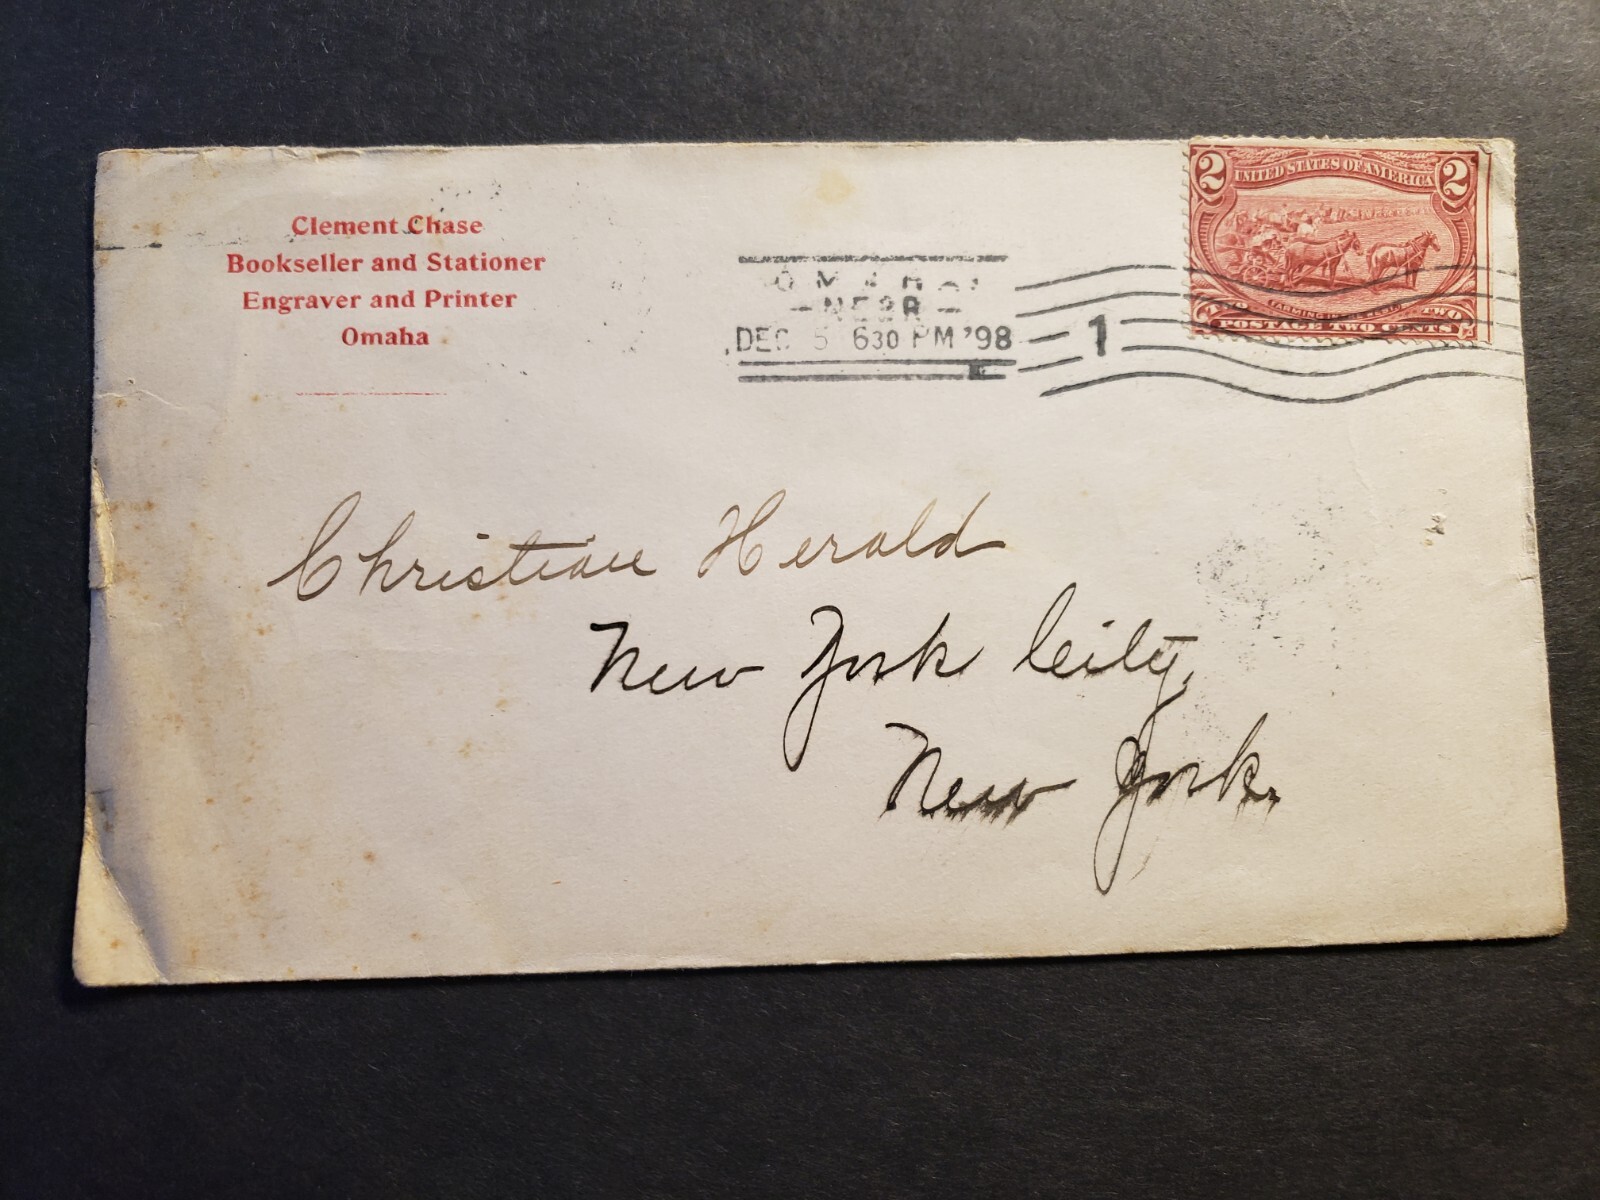 Clement Chase
Bookseller and Stationer
Engraver and Printer
Omaha
OMAHA
NEBR
DEC 5 630 PM '98
1
2 UNITED STATES OF AMERICA 2
FARMING IN THE WEST.
TWO TWO
POSTAGE TWO CENTS
Christian Herald
New York City,
New York.